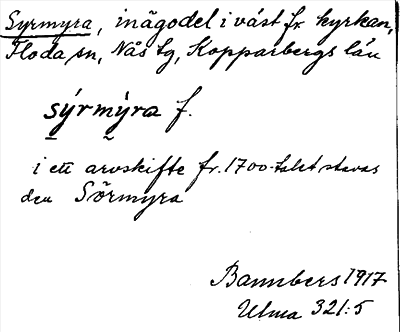 Syrmyra, inägodel i väst fr kyrkan,
Floda sn, Nås tg, Kopparbergs län
sýrmỳra f.
i ett arvskifte fr. 1700-talet stavas
den Sörmyra
Bannbers 1917
Ulma 321:5